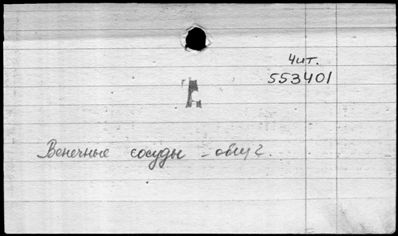 Чит.
553401
Венечные сосуды -